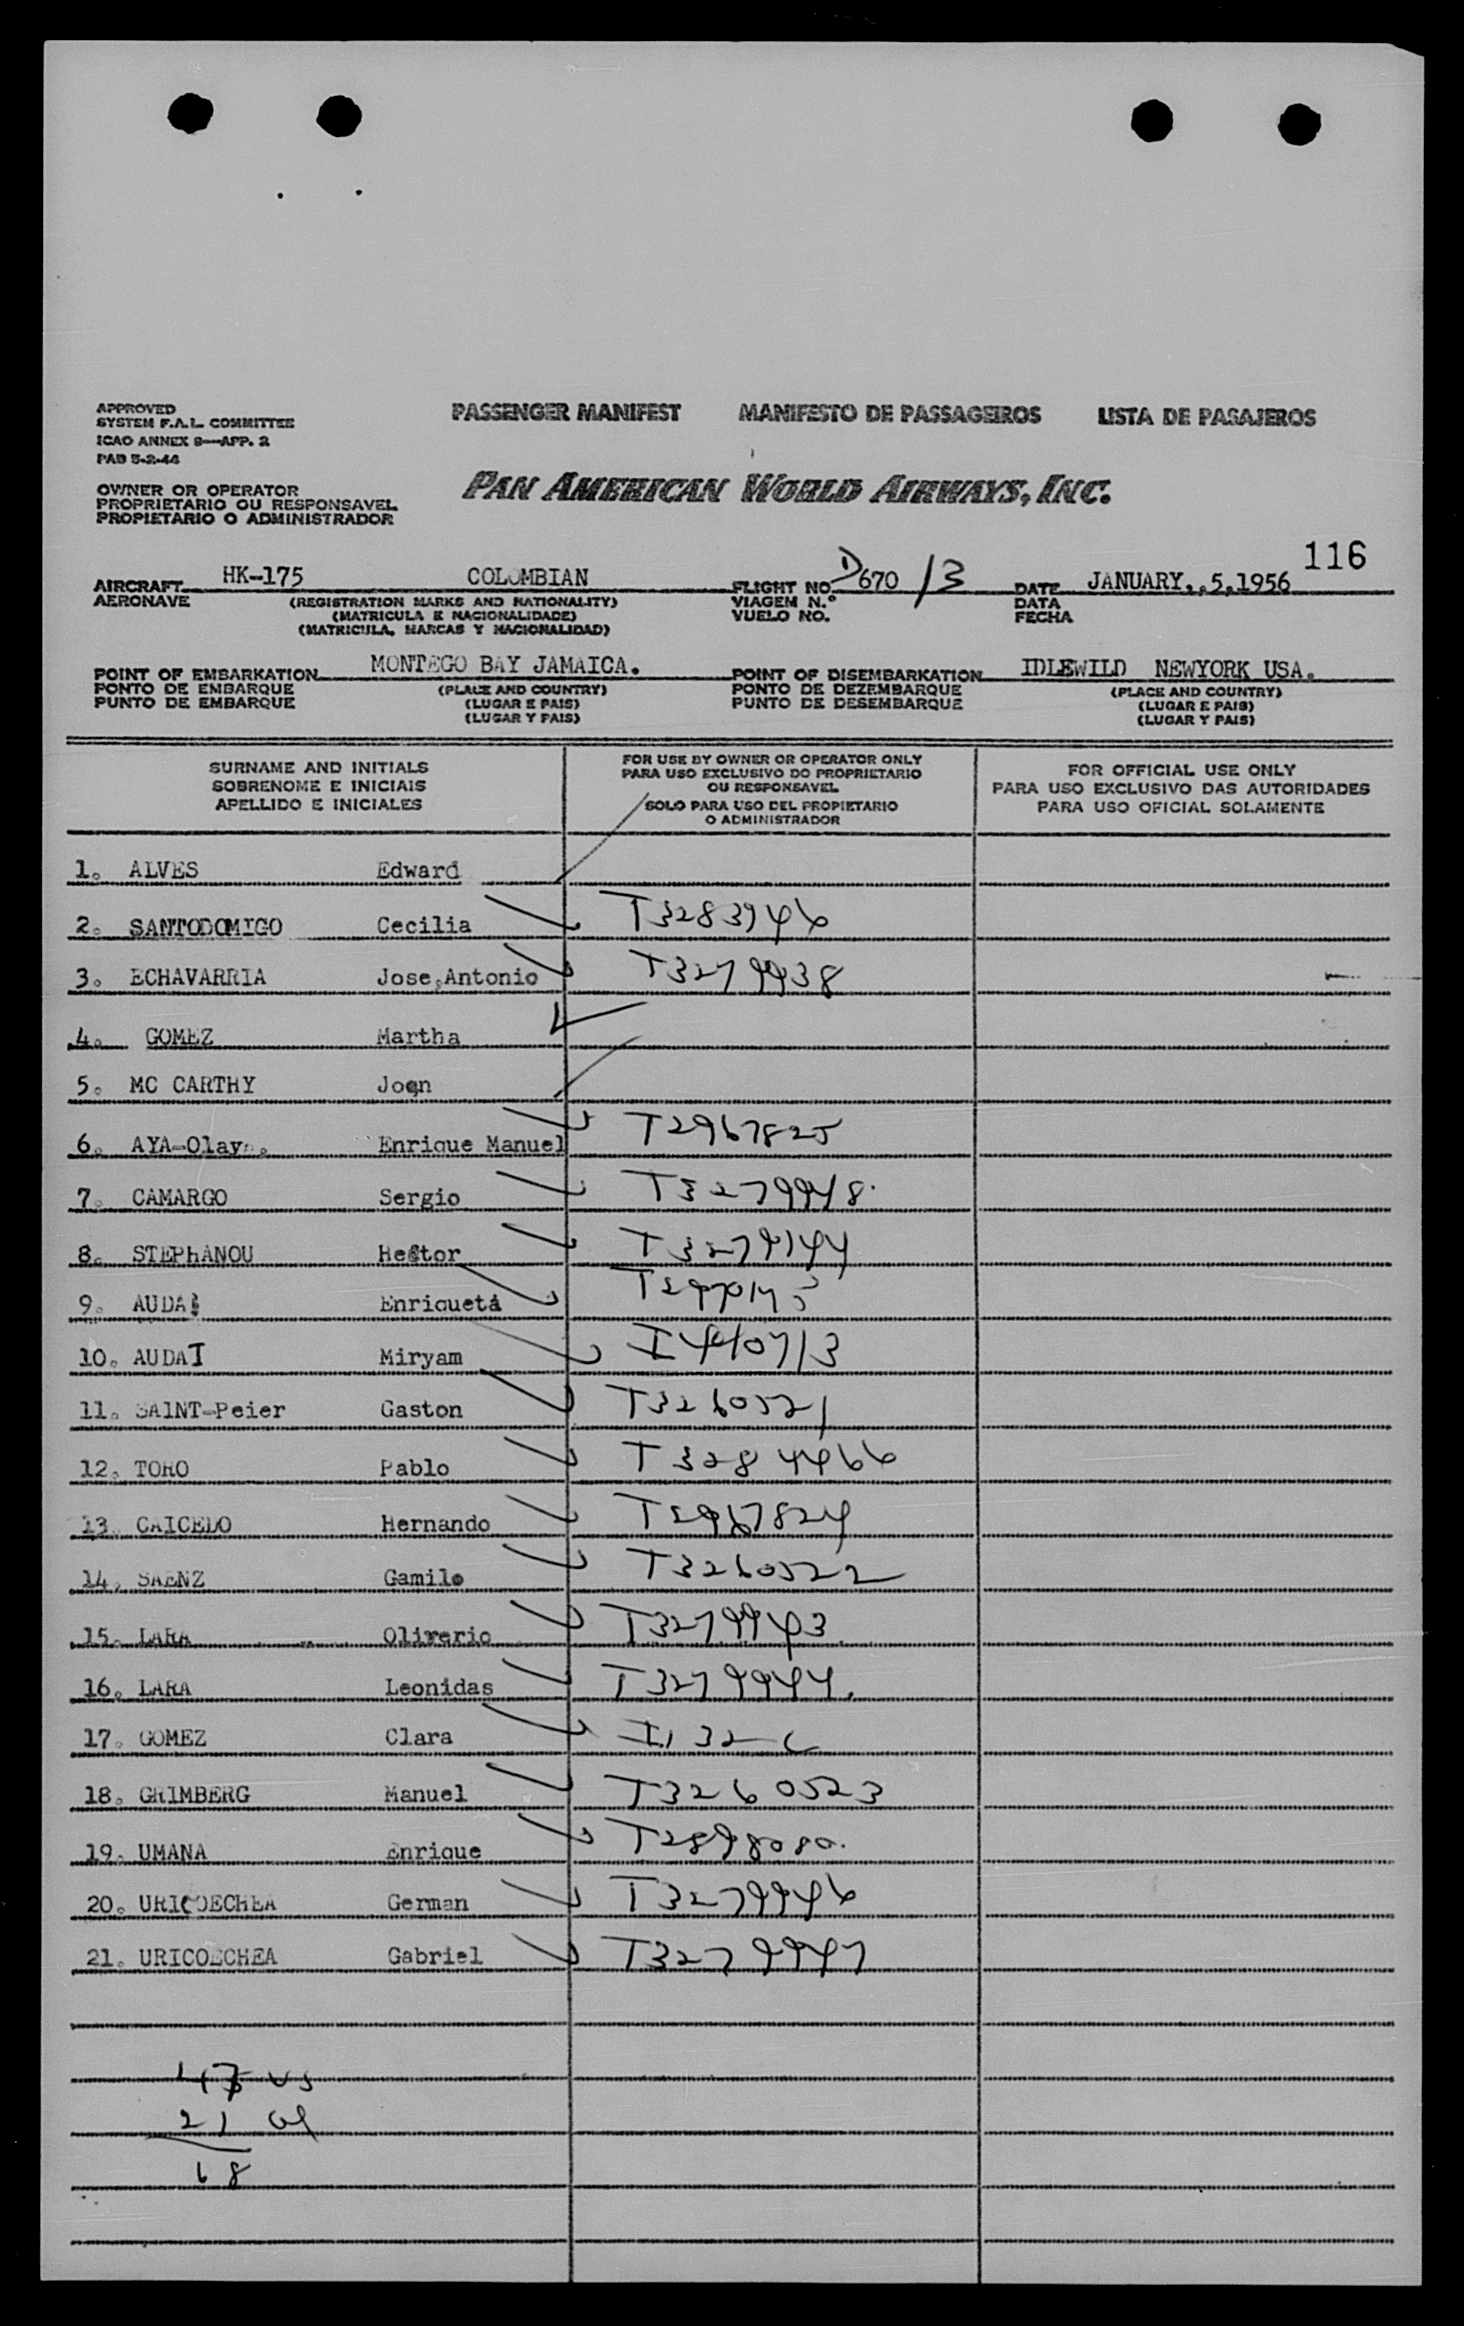 APPROVED
SYSTEM F.A.L. COMMITTEE
ICAO ANNEX 9—APP. 2
PAD 5-2-44
PASSENGER MANIFEST MANIFESTO DE PASSAGEIROS LISTA DE PASAJEROS
OWNER OR OPERATOR
PROPRIETARIO OU RESPONSAVEL
PROPIETARIO O ADMINISTRADOR
PAN AMERICAN WORLD AIRWAYS, INC.
116
AIRCRAFT HK-175 COLOMBIAN FLIGHT NO. D670 /3 DATE JANUARY,.5,1956
AERONAVE (REGISTRATION MARKS AND NATIONALITY) VIAGEM N.° DATA
(MATRICULA E NACIONALIDADE) VUELO NO. FECHA
(MATRICULA, MARCAS Y NACIONALIDAD)
POINT OF EMBARKATION MONTEGO BAY JAMAICA. POINT OF DISEMBARKATION IDLEWILD NEWYORK USA.
PONTO DE EMBARQUE (PLACE AND COUNTRY) PONTO DE DEZEMBARQUE (PLACE AND COUNTRY)
PUNTO DE EMBARQUE (LUGAR E PAIS) PUNTO DE DESEMBARQUE (LUGAR E PAIS)
(LUGAR Y PAIS) (LUGAR Y PAIS)
SURNAME AND INITIALS
SOBRENOME E INICIAIS
APELLIDO E INICIALES
FOR USE BY OWNER OR OPERATOR ONLY
PARA USO EXCLUSIVO DO PROPRIETARIO
OU RESPONSAVEL
SOLO PARA USO DEL PROPIETARIO
O ADMINISTRADOR
FOR OFFICIAL USE ONLY
PARA USO EXCLUSIVO DAS AUTORIDADES
PARA USO OFICIAL SOLAMENTE
1. ALVES Edward
2. SANTODOMIGO Cecilia T3283946
3. ECHAVARRIA Jose,Antonio T3279938
4. GOMEZ Martha
5. MC CARTHY Joan
6. AYA-Olaya. Enrique Manuel T2967825
7. CAMARGO Sergio T3279948.
8. STEPhANOU Hector T3279944
9. AUDAI Enriqueta
10. AUDAI Miryam I440713
11. SAINT-Peier Gaston T3260521
12. TORO Pablo T3284466
13. CAICEDO Hernando T2967824
14. SAENZ Gamilo T3260522
15. LARA Oliverio T3279943
16. LARA Leonidas T3279944.
17. GOMEZ Clara
18. GRIMBERG Manuel T3260523
19. UMANA Enrique T2898080.
20. URICOECHEA German T3279946
21. URICOECHEA Gabriel T3279947
47 US
21
68